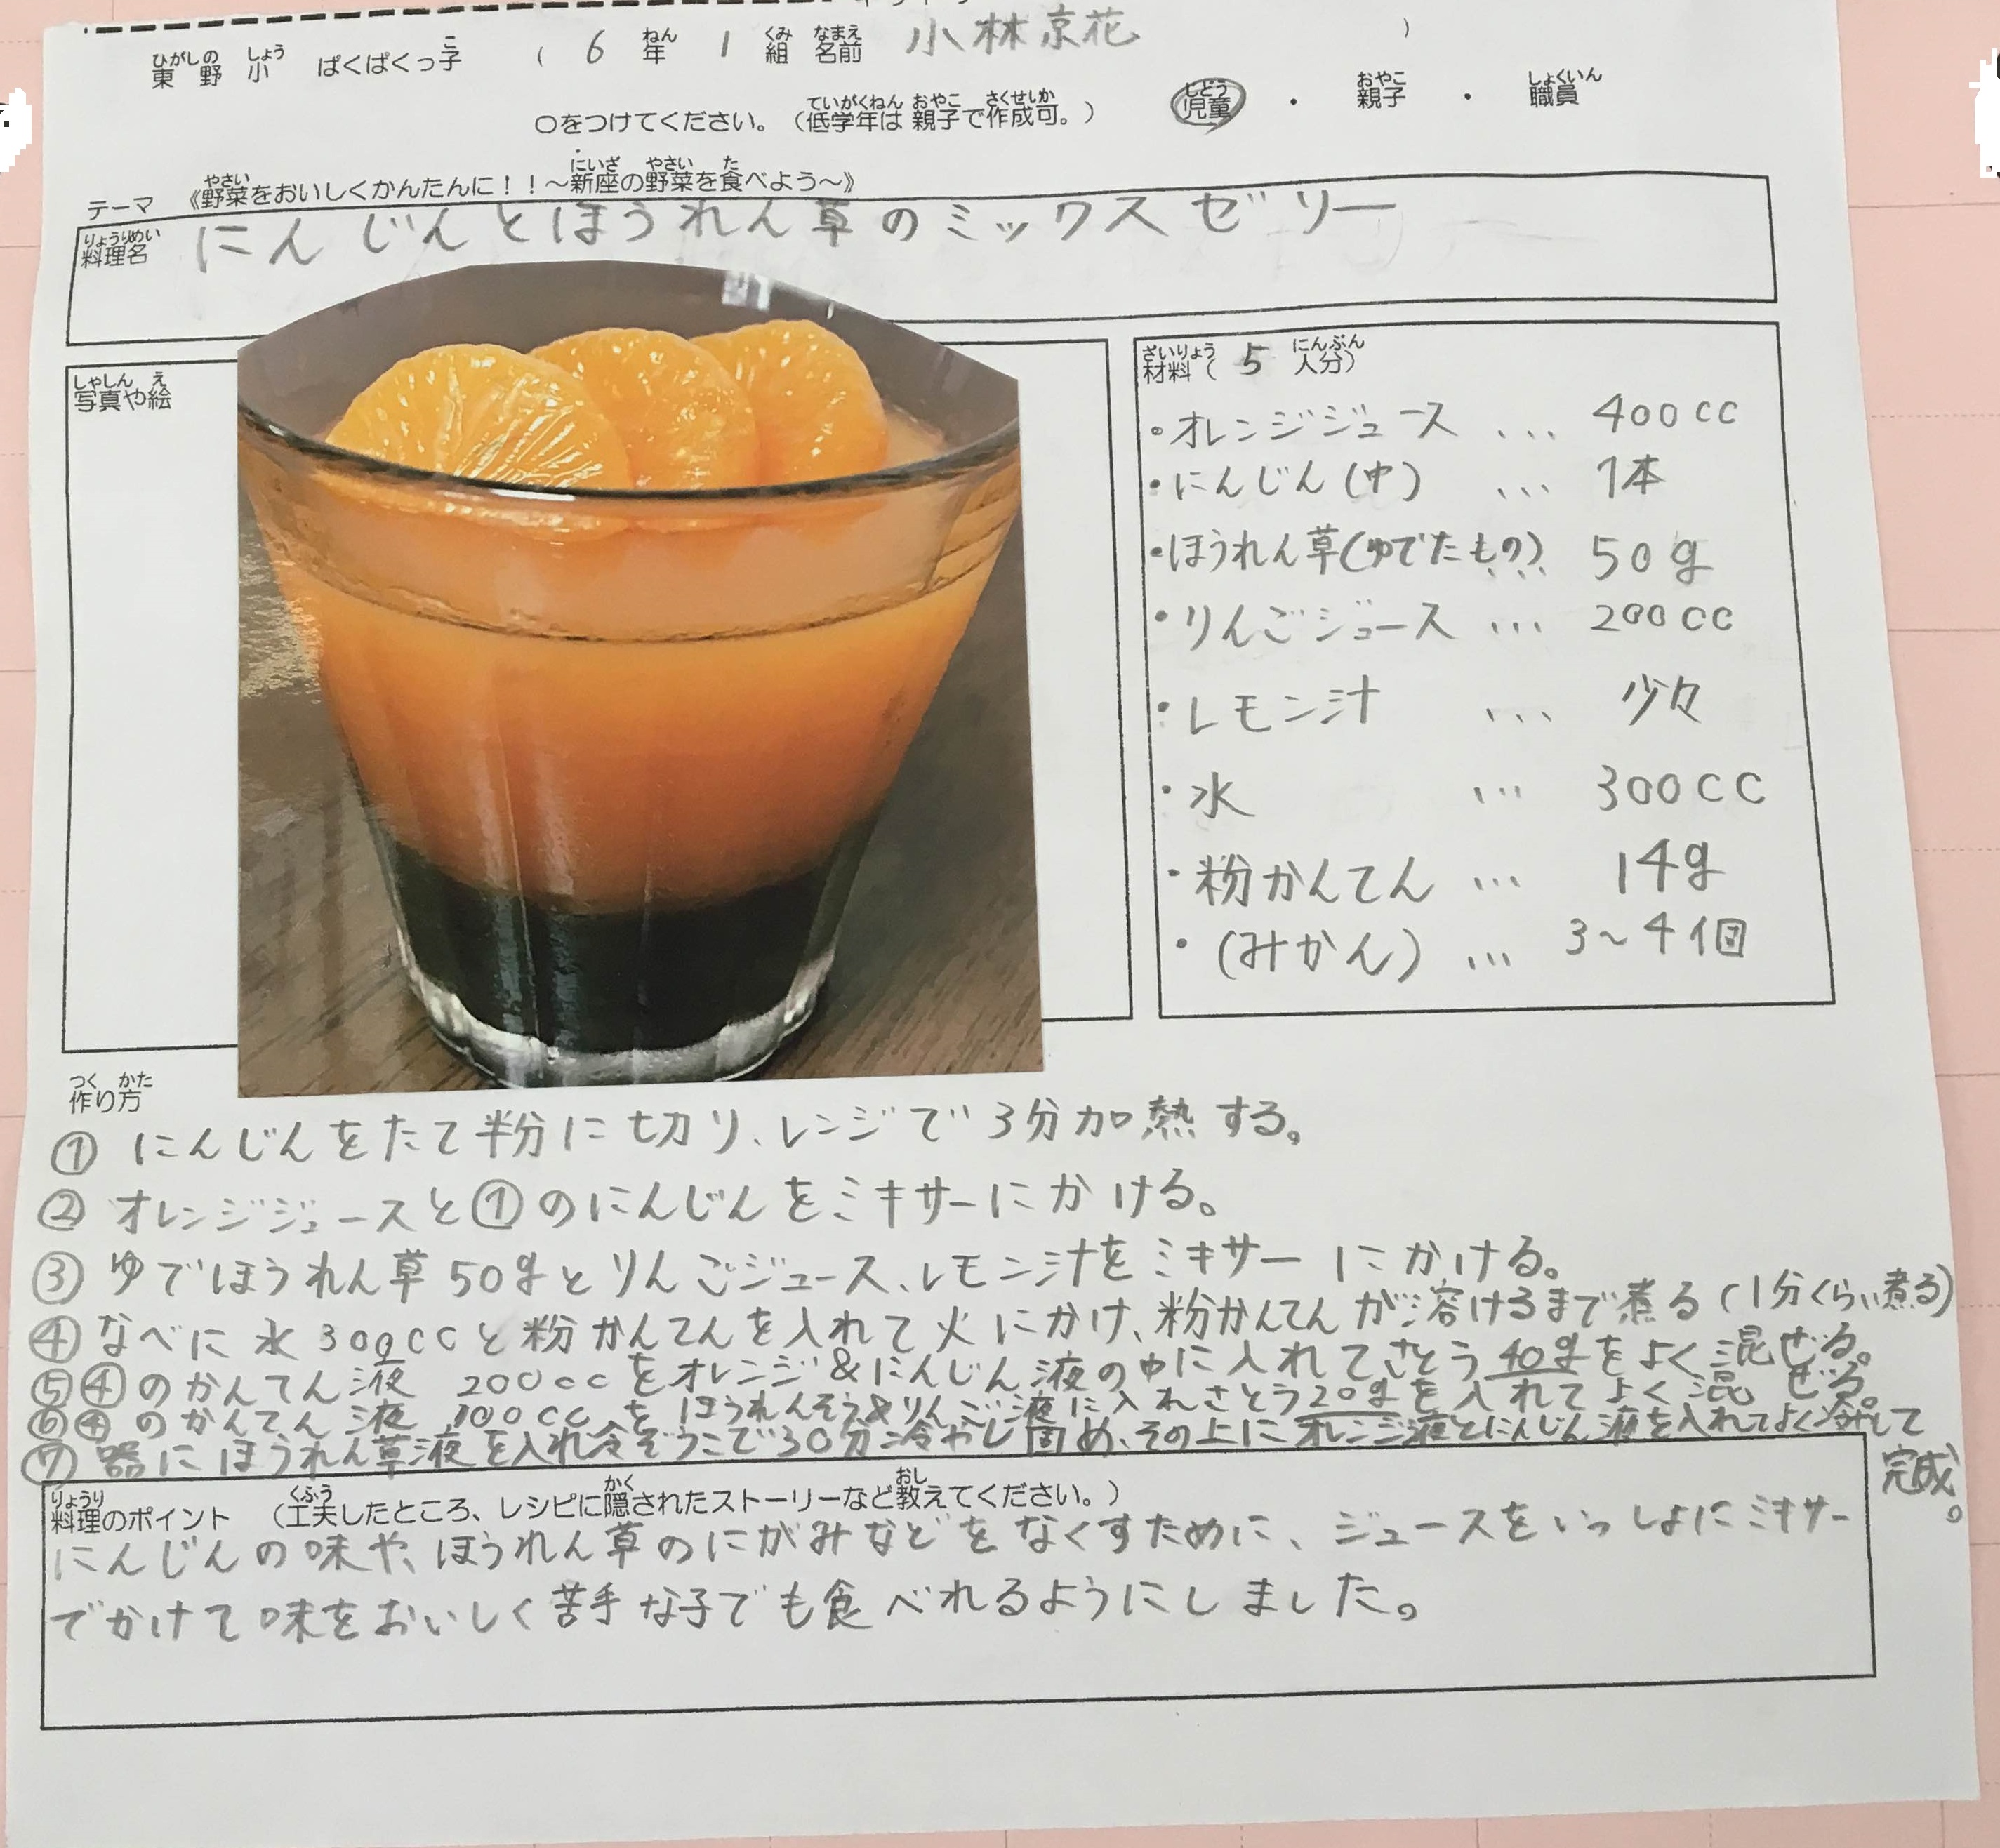 東野小 ぱくぱくっ子 ( 6 年 1 組 名前 小林京花 )
○をつけてください。(低学年は 親子で作成可。) 児童 ・ 親子 ・ 職員
テーマ 《野菜をおいしくかんたんに!!~新座の野菜を食べよう~》
料理名 にんじんとほうれん草のミックスゼリー
写真や絵
材料( 5 人分)
・オレンジジュース … 400cc
・にんじん(中) … 1本
・ほうれん草(ゆでたもの) … 50g
・りんごジュース … 200cc
・レモン汁 … 少々
・水 … 300cc
・粉かんてん … 14g
・(みかん) … 3~4個
作り方
① にんじんをたて半分に切り、レンジで3分加熱する。
② オレンジジュースと①のにんじんをミキサーにかける。
③ ゆでほうれん草50gとりんごジュース、レモン汁をミキサーにかける。
④ なべに水300ccと粉かんてんを入れて火にかけ、粉かんてんが溶けるまで煮る(1分くらい煮る)
⑤④のかんてん液 200ccをオレンジ&にんじん液の中に入れてさとう40gをよく混ぜる。
⑥④のかんてん液 100ccをほうれんそう&りんご液に入れさとう20gを入れてよく混ぜる。
⑦ 器にほうれん草液を入れ冷ぞうこで30分冷やし固め、その上にオレンジ液とにんじん液を入れてよく冷やして
完成。
料理のポイント (工夫したところ、レシピに隠されたストーリーなど教えてください。)
にんじんの味や、ほうれん草のにがみなどをなくすために、ジュースをいっしょにミキサー
でかけて味をおいしく苦手な子でも食べれるようにしました。